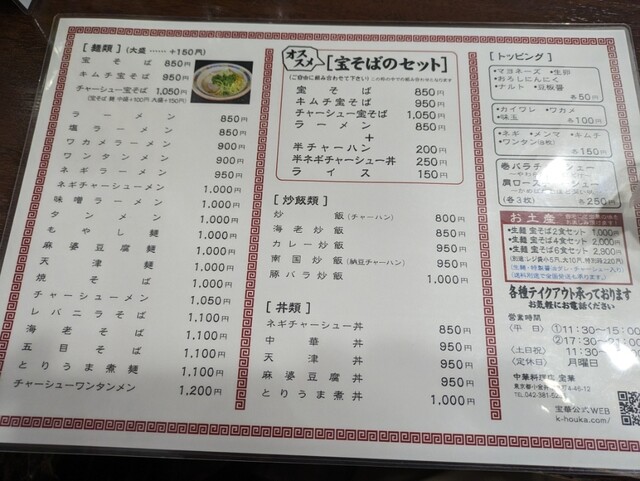 [ 麺類 ] (大盛 …… +150円)
宝そば 850円
キムチ宝そば 950円
チャーシュー宝そば 1,050円
(宝そば 麺 中盛+100円、大盛+150円)
ラーメン 850円
塩ラーメン 850円
ワカメラーメン 900円
ワンタンメン 900円
ネギラーメン 950円
ネギチャーシューメン 1,000円
味噌ラーメン 1,000円
タンメン 1,000円
もやし麺 1,000円
麻婆豆腐麺 1,000円
天津麺 1,000円
焼そば 1,000円
チャーシューメン 1,050円
レバニラそば 1,100円
海老そば 1,100円
五目そば 1,100円
とりうま煮麺 1,100円
チャーシューワンタンメン 1,200円
オススメ [宝そばのセット]
宝そば 850円
キムチ宝そば 950円
チャーシュー宝そば 1,050円
ラーメン 850円
+
半チャーハン 200円
半ネギチャーシュー丼 250円
ライス 150円
[ 炒飯類 ]
炒飯(チャーハン) 800円
海老炒飯 850円
カレー炒飯 950円
南国炒飯(納豆チャーハン) 950円
豚バラ炒飯 950円
[ 丼類 ]
ネギチャーシュー丼 850円
中華丼 950円
天津丼 950円
麻婆豆腐丼 950円
とりうま煮丼 1,000円
[ トッピング ]
•マヨネーズ •生卵
•おろしにんにく
•ナルト •豆板醤
各50円
•カイワレ •ワカメ
•味玉 各100円
•ネギ •メンマ •キムチ
•ワンタン(6枚)
各150円
巻バラチャーシュー
肩ロースチャーシュー
(各3枚) 各250円
お土産
•生麺 宝そば2食セット 1,000円
•生麺 宝そば4食セット 2,000円
•生麺 宝そば6食セット 2,900円
各種テイクアウト承っております
お気軽にお電話ください
営業時間
〈平 日〉①11:30~15:00
②17:30~21:00
〈土日祝〉 11:30~
〈定休日〉 月曜日
中華料理店 宝華
TEL.042-381-
宝華公式WEB
k-houka.com/